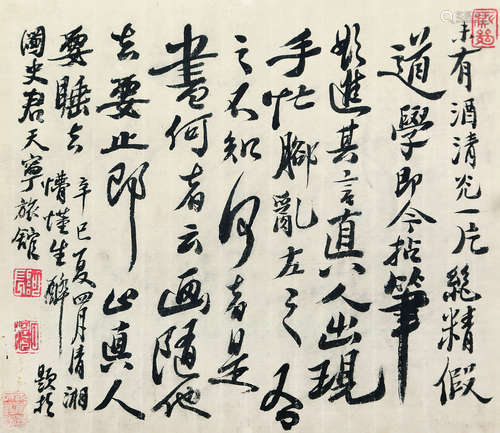 有酒清光一片絕精假
道學即今拈筆
進其言真人出現
手忙腳亂左之右
之不知何者是
畫何者云畫隨他
去要止即止真人
要睡去
辛巳夏四月清湘
懵懂生醉題於
史君天寧旅館